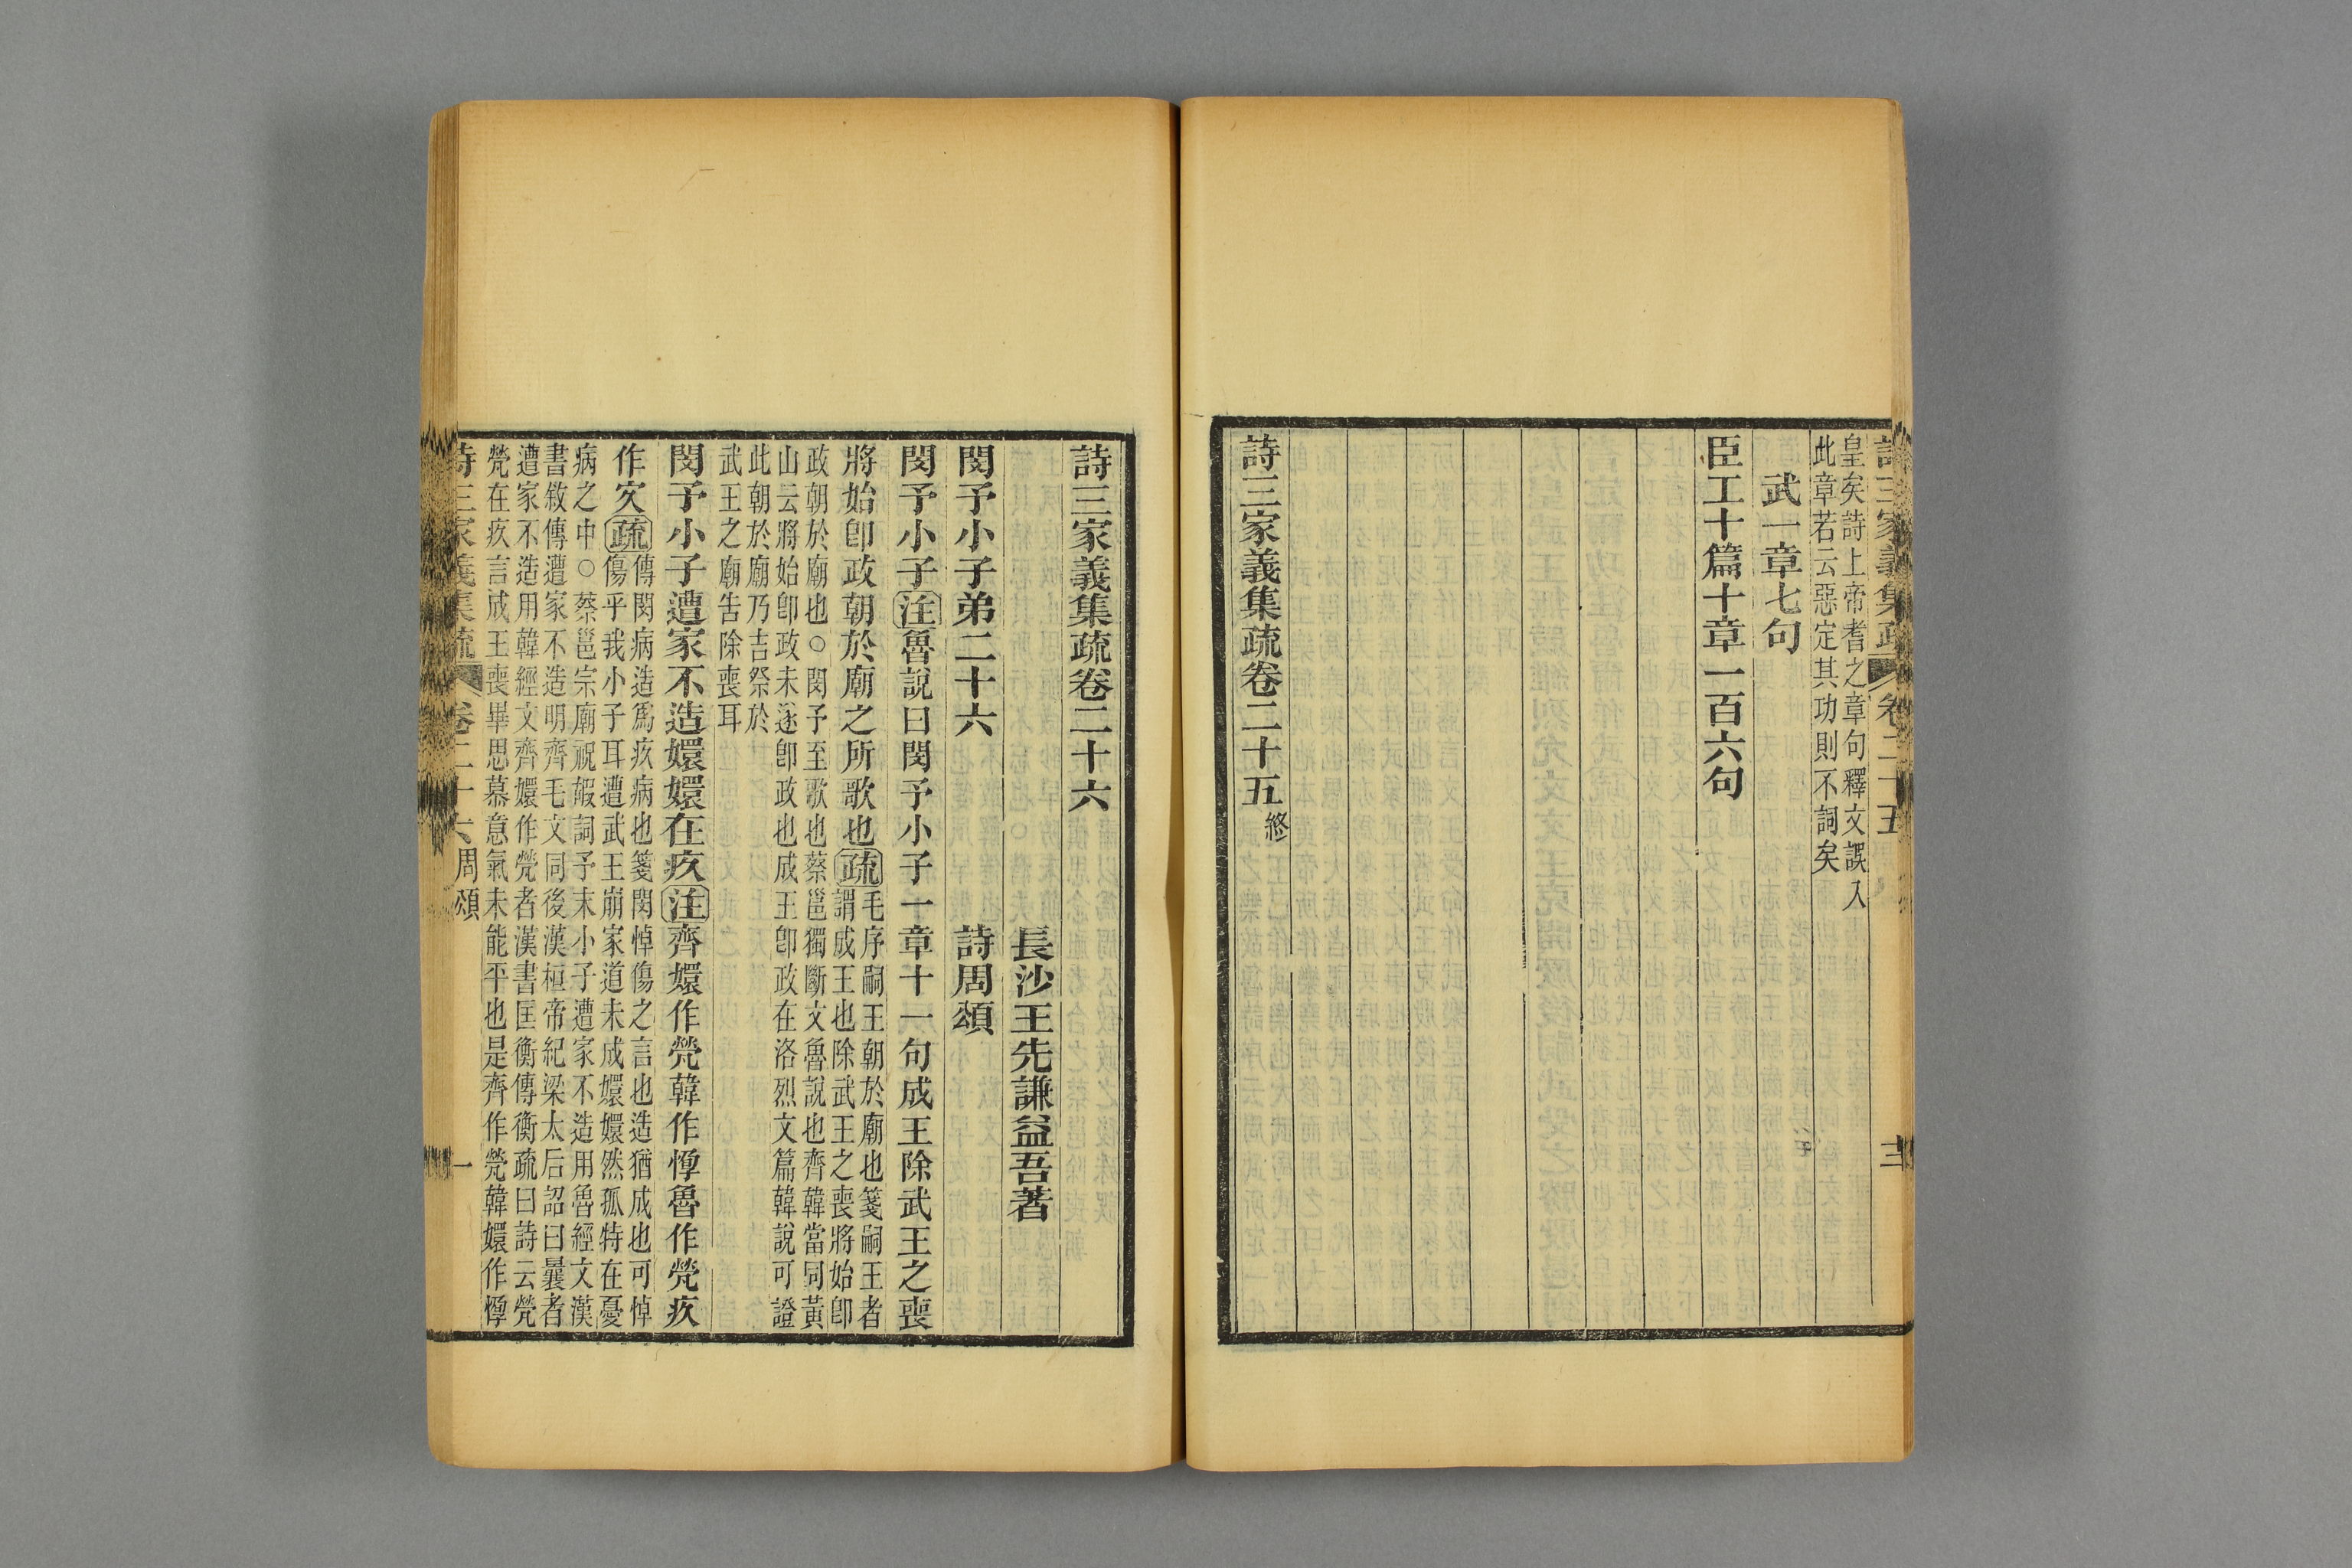 皇矣詩上帝耆之章句釋文誤入
此章若云惡定其功則不詞矣
武一章七句
臣工十篇十章一百六句
詩三家義集疏卷二十五終
詩三家義集疏卷二十六
長沙王先謙益吾著
閔予小子弟二十六
詩周頌
閔予小子注魯說曰閔予小子一章十一句成王除武王之喪
將始卽政朝於廟之所歌也疏
毛序嗣王朝於廟也箋嗣王者
謂成王也除武王之喪將始卽
政朝於廟也○閔予至歌也蔡邕獨斷文魯說也齊韓當同黃
山云將始卽政未遂卽政也成王卽政在洛烈文篇韓說可證
此朝於廟乃吉祭於
武王之廟告除喪耳
閔予小子遭家不造嬛嬛在疚注齊嬛作煢韓作惸魯作煢疚
作㝌疏
傳閔病造爲疚病也箋閔悼傷之言也造猶成也可悼
傷乎我小子耳遭武王崩家道未成嬛嬛然孤特在憂
病之中○蔡邕宗廟祝嘏詞予末小子遭家不造用魯經文漢
書敘傳遭家不造明齊毛文同後漢桓帝紀梁太后詔曰曩者
遭家不造用韓經文齊嬛作煢者漢書匡衡傳衡疏曰詩云煢
煢在疚言成王喪畢思慕意氣未能平也是齊作煢韓嬛作惸
詩三家義集疏 卷二十六 周頌 一